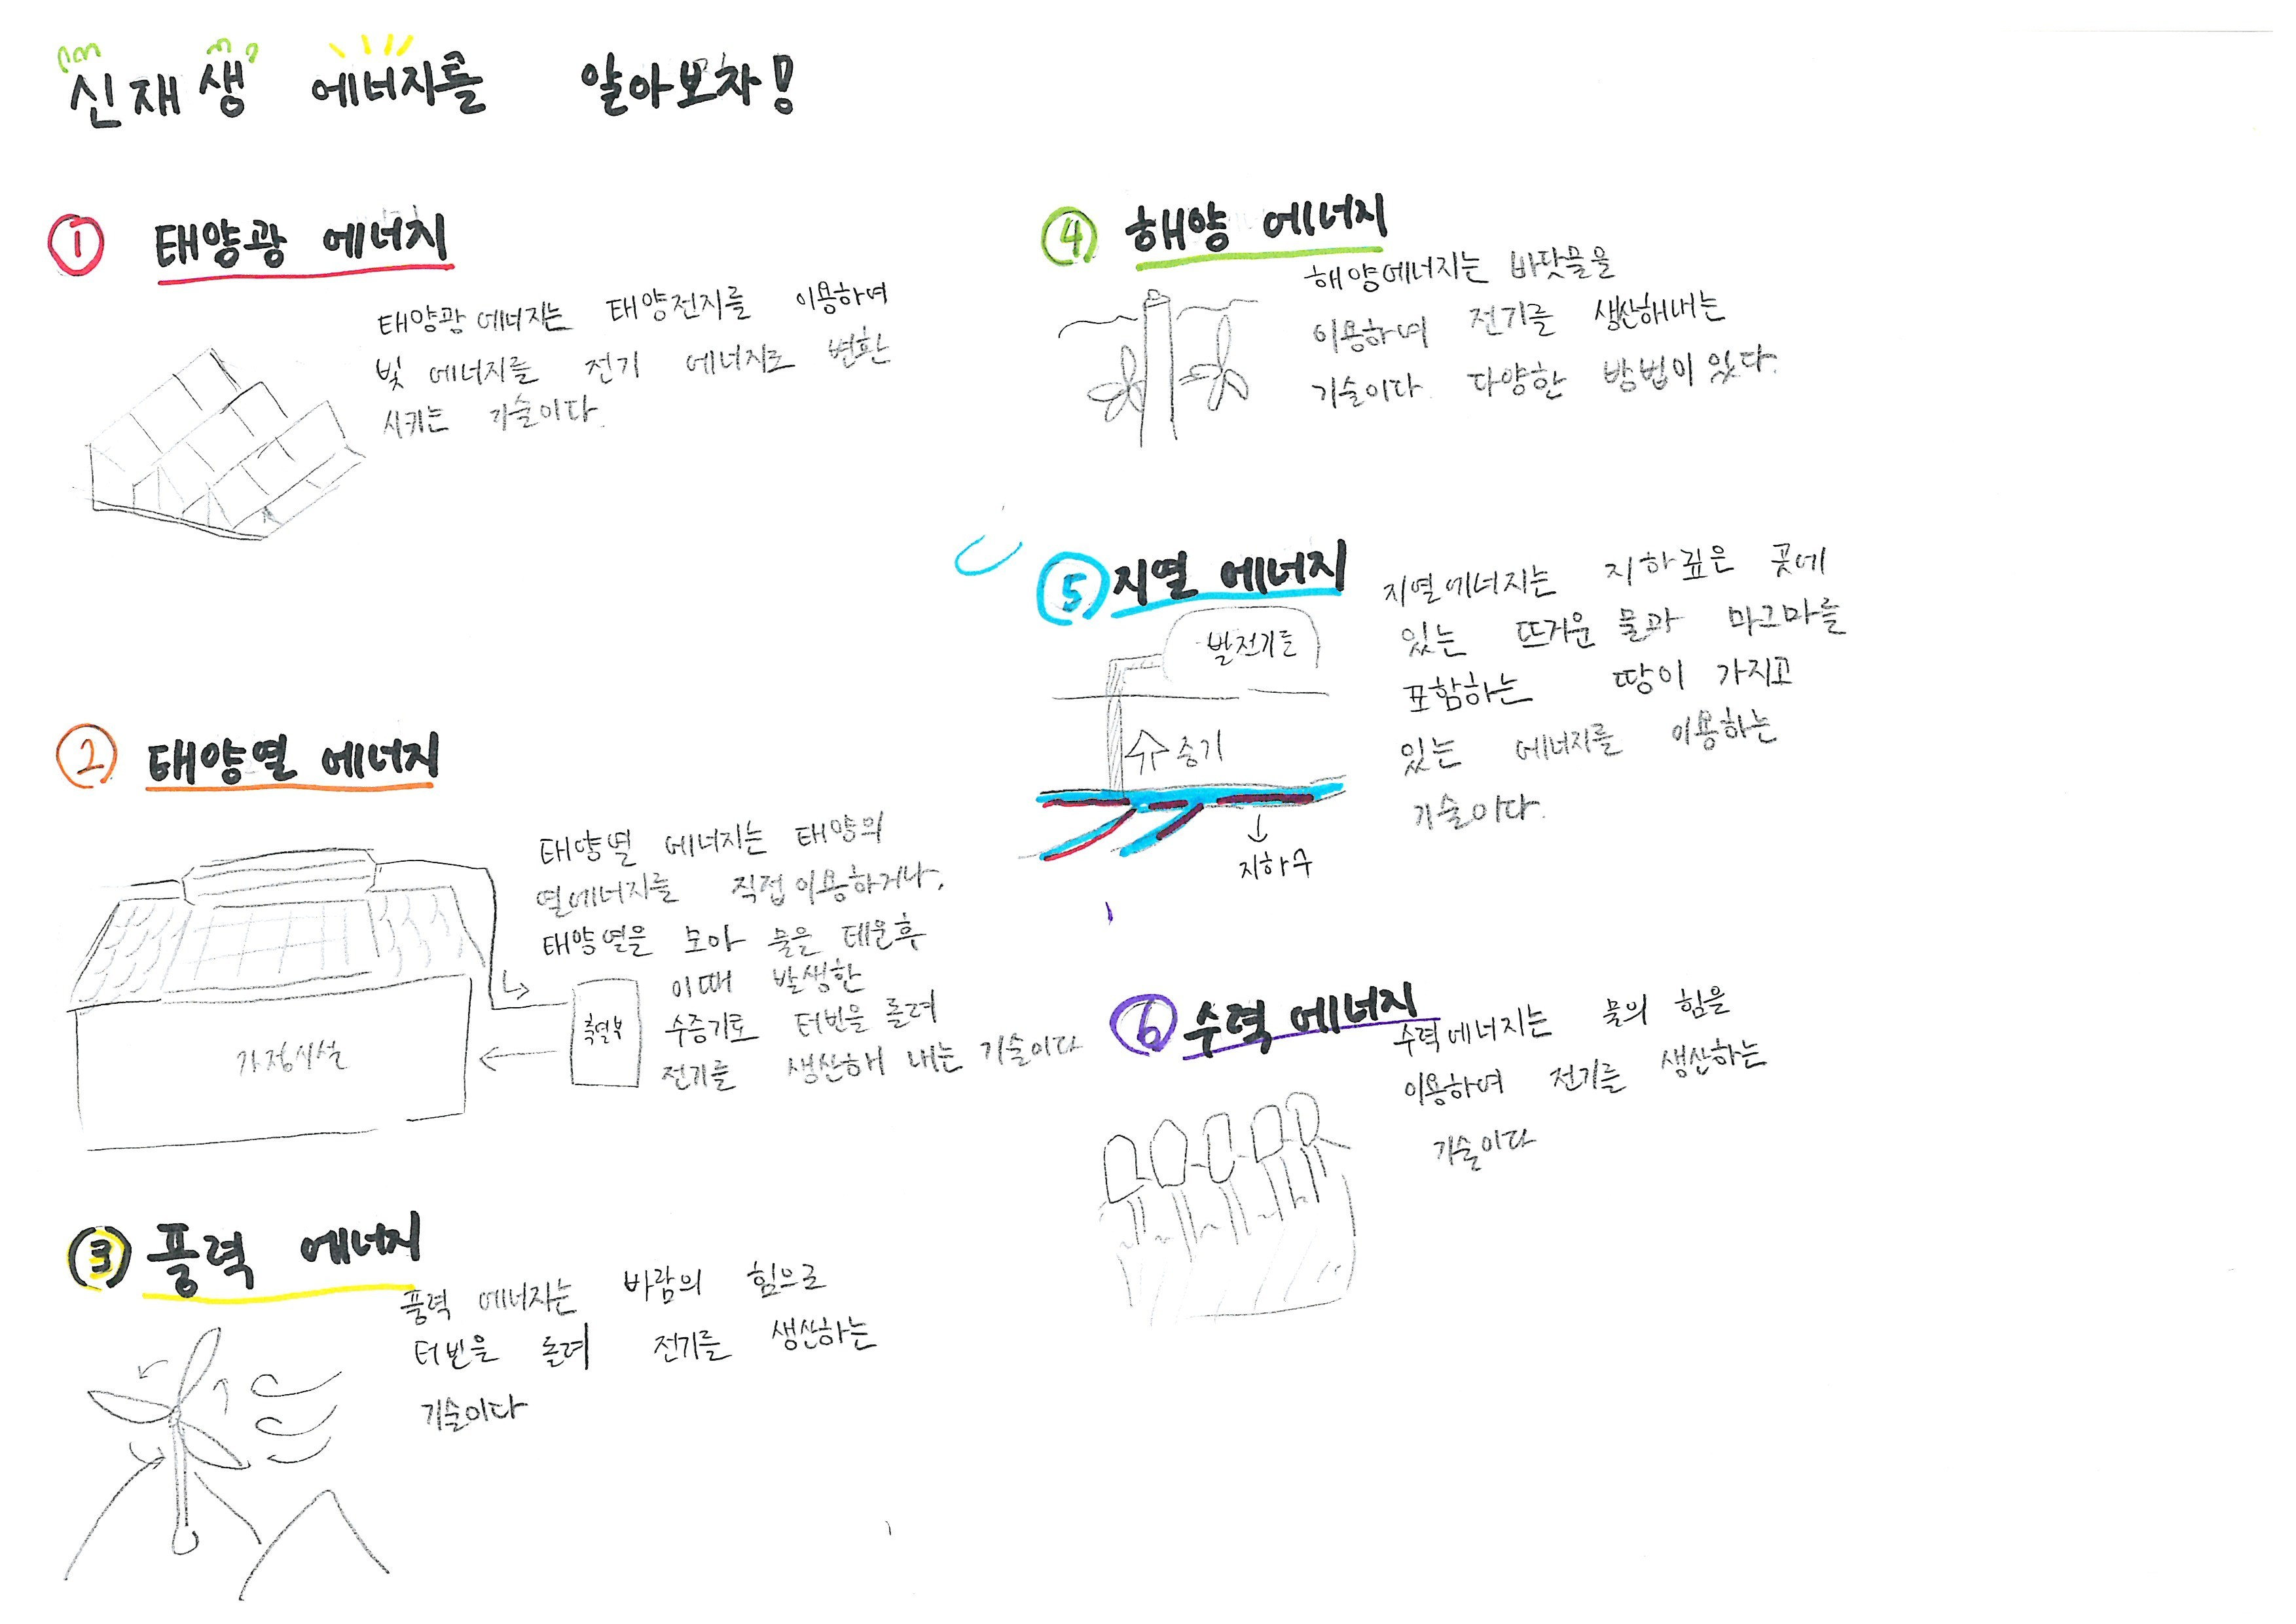 신재생 에너지를 알아보자!
① 태양광 에너지
태양광 에너지는 태양전지를 이용하여
빛 에너지를 전기 에너지로 변환
시키는 기술이다.
② 태양열 에너지
태양열 에너지는 태양의
열에너지를 직접 이용하거나,
태양열을 모아 물을 데운후
이때 발생한
수증기로 터빈을 돌려
전기를 생산해 내는 기술이다
축열부
가정시설
③ 풍력 에너지
풍력 에너지는 바람의 힘으로
터빈을 돌려 전기를 생산하는
기술이다
④ 해양 에너지
해양에너지는 바닷물을
이용하여 전기를 생산해내는
기술이다. 다양한 방법이 있다.
⑤ 지열 에너지
지열에너지는 지하깊은 곳에
있는 뜨거운 물과 마그마를
포함하는 땅이 가지고
있는 에너지를 이용하는
기술이다.
증기
지하수
⑥ 수력 에너지
수력에너지는 물의 힘을
이용하여 전기를 생산하는
기술이다